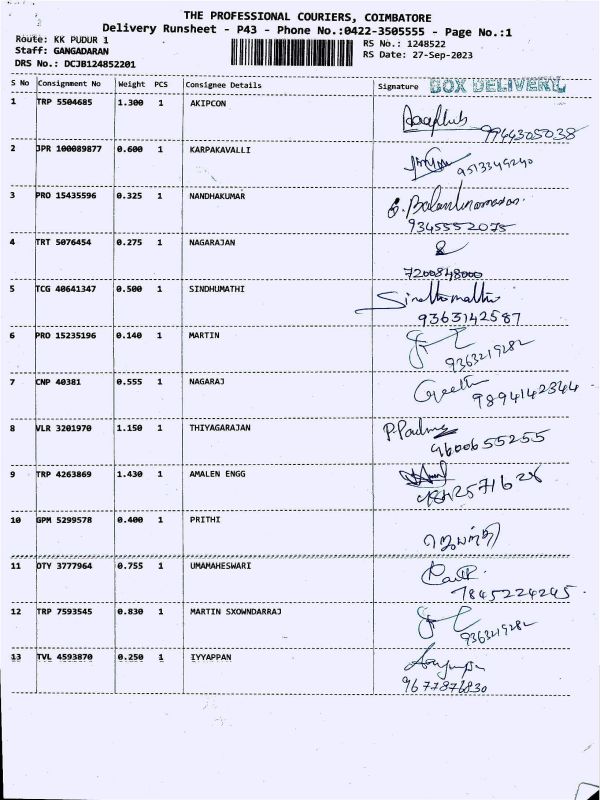 THE PROFESSIONAL COURIERS, COIMBATORE
Delivery Runsheet - P43 - Phone No.:0422-3505555 - Page No.:1
Route: KK PUDUR 1
RS No.: 1248522
Staff: GANGADARAN
RS Date: 27-Sep-2023
DRS No.: DCJB124852201
S No Consignment No Weight PCS Consignee Details Signature BOX DELIVERY
1 TRP 5504685 1.300 1 AKIPCON
9944305038
2 JPR 100089877 0.600 1 KARPAKAVALLI
9513349240
3 PRO 15435596 0.325 1 NANDHAKUMAR
9345552075
4 TRT 5076454 0.275 1 NAGARAJAN
7200848000
5 TCG 40641347 0.500 1 SINDHUMATHI
Sindhumathi
9363142587
6 PRO 15235196 0.140 1 MARTIN
9363219282
7 CNP 40381 0.555 1 NAGARAJ
Geetha
9894142344
8 VLR 3201970 1.150 1 THIYAGARAJAN
P. Padma
9600655255
9 TRP 4263869 1.430 1 AMALEN ENGG
10 GPM 5299578 0.400 1 PRITHI
11 OTY 3777964 0.755 1 UMAMAHESWARI
7845224245
12 TRP 7593545 0.830 1 MARTIN SXOWNDARRAJ
9363219282
13 TVL 4593870 0.250 1 IYYAPPAN
9677876830